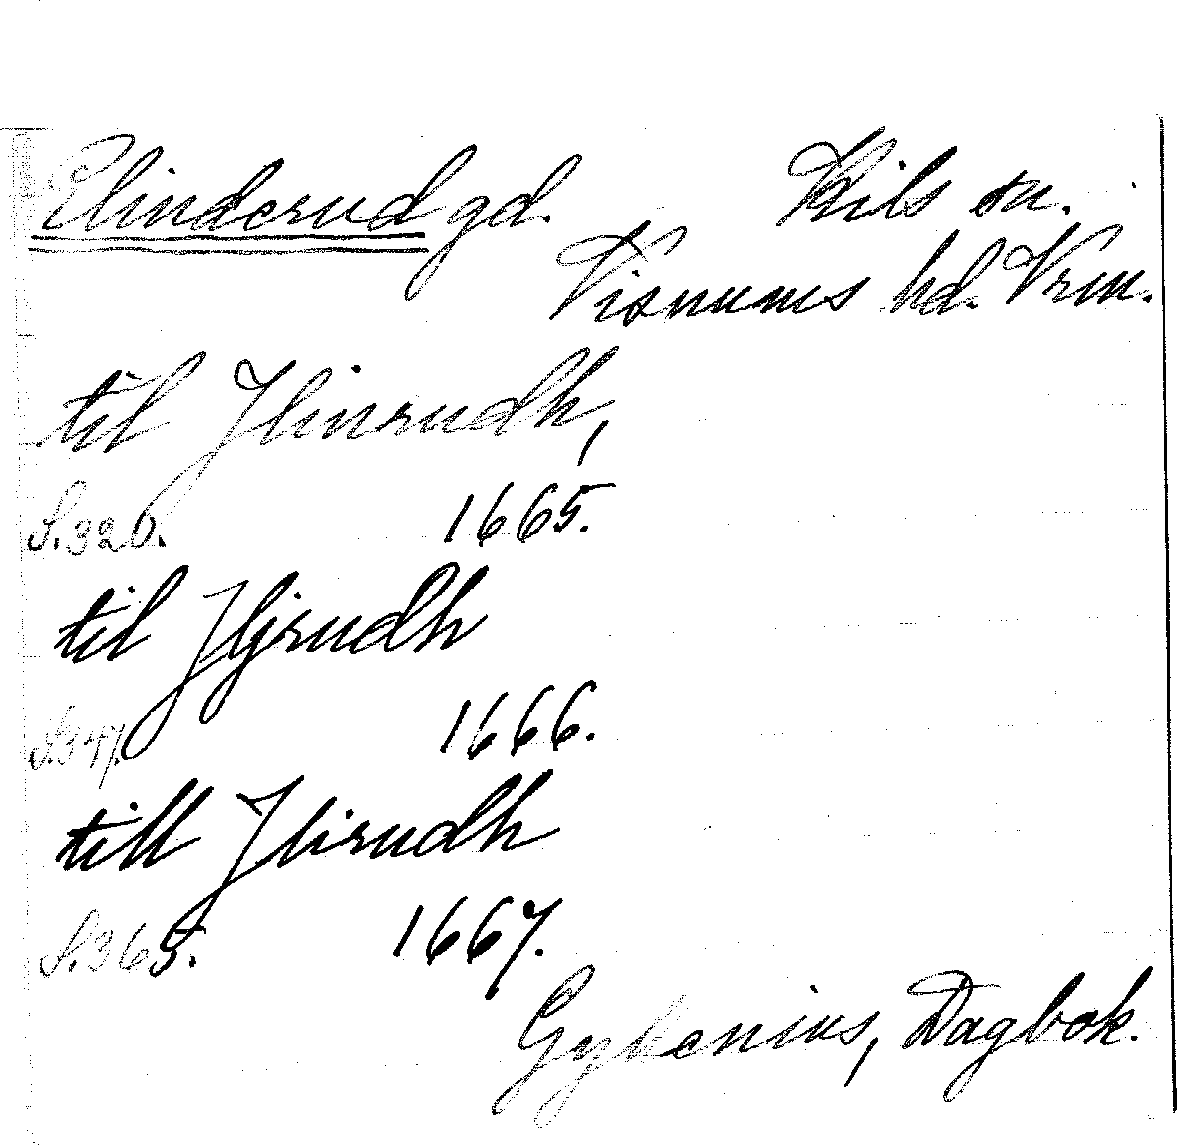 Elinderud gd. Kils sn.
Visnums hd. Vrm.
til Jlinrudh,
S.320. 1665.
til Jljrudh
S.347. 1666.
till Jlirudh
S.365. 1667.
Gyllenius, Dagbok.